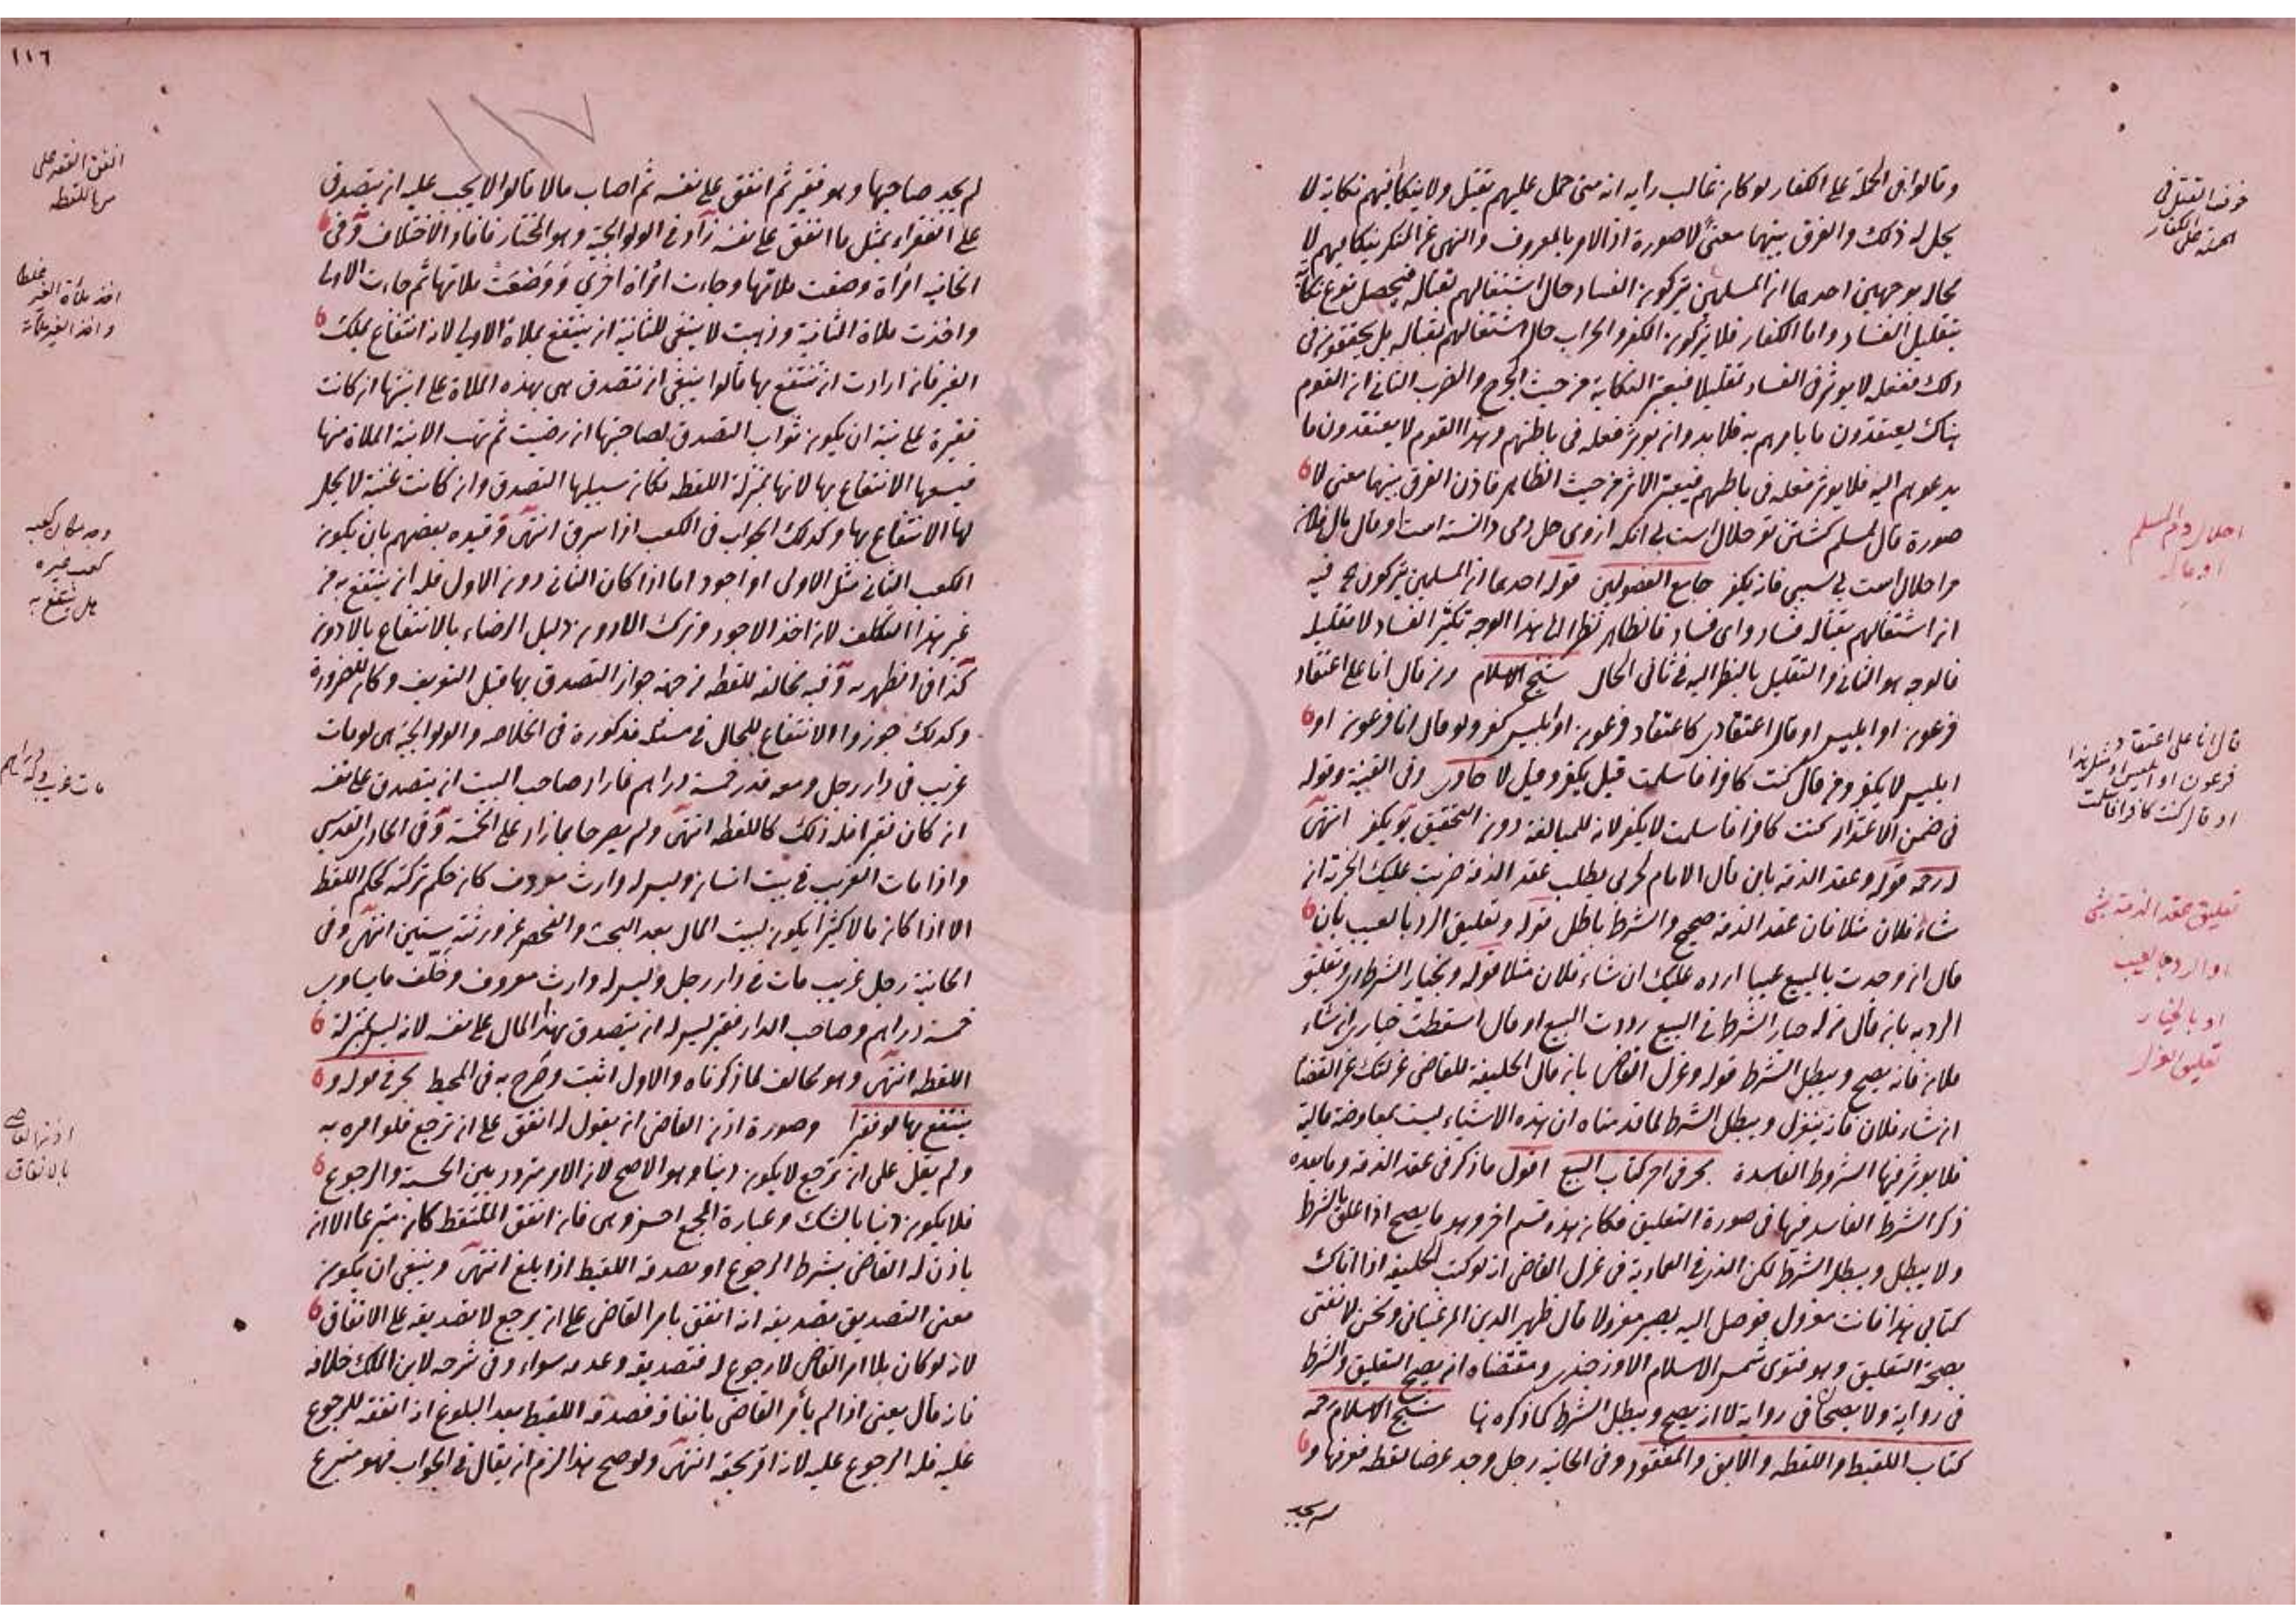 وقالوا في الحملة على الكفار لو كان غالب رأيه انه متى حمل عليهم يقتل ولا ينكأ فيهم نكاية لا
يحل له ذلك والفرق بينهما معنى لا صورة اذ الامر بالمعروف والنهي عن المنكر ينكأ فيهم لا
محالة بوجهين احدهما ان المسلمين يتركون الفساد حال اشتغالهم بقتاله فيحصل نوع نكاية
بتقليل الفساد واما الكفار فلا يتركون الكفر والحراب حال اشتغالهم بقتاله بل يحققون في
ذلك ففعله لا يوثر في الفساد تقليلا فيعتبر النكاية من حيث الجرح والضرب الثاني ان القوم
هناك يعتقدون ما يامرهم به فلا بد وان يوثر فعله في باطنهم وهذا القوم لا يعتقدون ما
يدعوهم اليه فلا يوثر فعله في باطنهم فيعتبر الاثر من حيث الظاهر فاذن الفرق بينهما معنى لا
صورة قال لمسلم كشتن تو حلال است بى انكه از وى حل دمى دانسته است او قال مال فلان
مرا حلال است بى سببى فانه يكفر جامع الفصولين قوله احدهما ان المسلمين يتركون فيه
ان اشتغالهم بقتاله فساد واى فساد فالظاهر نظرا الى هذا الوجه تكثير الفساد لا تقليله
فالوجه هو الثاني والتقليل بالنظر اليه في ثاني الحال شيخ الاسلام ومن قال انا على اعتقاد
فرعون او ابليس او قال اعتقادي كاعتقاد فرعون او ابليس كفر ولو قال انا فرعون او
ابليس لا يكفر ومن قال كنت كافرا فاسلمت قيل يكفر وقيل لا حاوى وفي القنية وقوله
في ضمن الاعتذار كنت كافرا فاسلمت لا يكفر لانه للمبالغة دون التحقيق يو يكفر انتهى
درر حه قوله وعقد الذمة بان قال الامام لحربي يطلب عقد الذمة ضربت عليك الجزية ان
شاء فلان مثلا فان عقد الذمة صحيح والشرط باطل قوله وتعليق الرد بالعيب بان
قال ان وجدت بالمبيع عيبا ارده عليك ان شاء فلان مثلا قوله وبخيار الشرط اى وتعليق
الرد به بان قال من له خيار الشرط في البيع رددت البيع او قال اسقطت خياري ان شاء
فلان فانه يصح ويبطل الشرط قوله وعزل القاضي بان قال الخليفة للقاضي عزلتك عن القضا
ان شاء فلان فانه ينعزل ويبطل الشرط لما قدمناه ان هذه الاشياء ليست بمعاوضة مالية
فلا يوثر فيها الشروط الفاسدة بحر في اخر كتاب البيع اقول ما ذكر في عقد الذمة وما بعده
ذكر الشرط الفاسد فيها في صورة التعليق فكان هذه قسم اخر وهو ما يصح اذا علق بالشرط
ولا يبطل ويبطل الشرط لكن الذي في العمادية في عزل القاضي انه لو كتب الخليفة اذا اتاك
كتابي هذا فانت معزول فوصل اليه يصير معزولا قال ظهير الدين المرغيناني ونحن لا نفتي
بصحة التعليق وهو فتوى شمس الاسلام الاوزجندي ومقتضاه انه يصح التعليق والشرط
في رواية ولا يصحان في رواية لا انه يصح ويبطل الشرط كما ذكره هنا شيخ الاسلام رحمه
كتاب اللقيط واللقطه والابق والمفقود وفي الخانيه رجل وجد عرضا لقطه فعرفها و
لم يجد
خوف القتل في
الحمله على الكفار
احلال دم المسلم
او ماله
قال انا على اعتقاد
فرعون او ابليس او مثل هذا
او قال كنت كافرا فاسلمت
تعليق عقد الذمة بشى
او الرد بالعيب
او بالخيار
تعليق العزل
١١٦
١١٧
لم يجد صاحبها وهو فقير ثم انفق على نفسه ثم اصاب مالا قالوا لا يجب عليه ان يتصدق
على الفقراء بمثل ما انفق على نفسه زاد في الولوالجية وهو المختار فافاد الاختلاف وفي
الخانيه امرأة وضعت ملاتها وجاءت امرأة اخرى ووضعت ملاتها ثم جاءت الاولى
واخذت ملاة الثانية وذهبت لا ينبغي للثانية ان ينتفع بملاة الاولى لانه انتفاع بملك
الغير فان ارادت ان تنتفع بها قالوا ينبغي ان تتصدق هى بهذه الملاة على ابنتها ان كانت
فقيرة على نية ان يكون ثواب التصدق لصاحبتها ان رضيت ثم تهب الابنة الملاة منها
فيسعها الانتفاع بها لانها بمنزلة اللقطه فكان سبيلها التصدق وان كانت غنية لا يحل
لها الانتفاع بها وكذلك الجواب في المكعب اذا سرق انتهى وقيده بعضهم بان يكون
المكعب الثاني مثل الاول او اجود اما اذا كان الثاني دون الاول فله ان ينتفع به من
غير هذا التكلف لان اخذ الاجود وترك الادون دليل الرضاء بالانتفاع بالادون
كذا في الظهيريه وفيه مخالفه للقطه من جهة جواز التصدق بها قبل التعريف وكانه للضرورة
وكذلك جوزوا الانتفاع للحال في مسئله مذكورة في الخلاصه والولوالجية هى لو مات
غريب في دار رجل ومعه قدر خمسة دراهم فاراد صاحب البيت ان يتصدق على نفسه
ان كان فقيرا فله ذلك كاللقطه انتهى ولم يصرحا بما زاد على الخمسة وفي الحاوى القدسي
واذا مات الغريب في بيت انسان وليس له وارث معروف كان حكم تركته كحكم اللقطه
الا اذا كان مالا كثيرا يكون لبيت المال بعد البحث والفحص عن ورثته سنين انتهى وفي
الخانية رجل غريب مات في دار رجل وليس له وارث معروف وخلف ما يساوى
خمسة دراهم وصاحب الدار فقير ليس له ان يتصدق بهذا المال على نفسه لانه ليس بمنزلة
اللقطه انتهى وهو مخالف لما ذكرناه والاول اثبت وصرح به في المحيط بحر في قوله و
ينتفع بها لو فقيرا وصورة اذن القاضي ان يقول له انفق على ان ترجع فلو امره به
ولم يقل على ان ترجع لا يكون دينا وهو الاصح لان الامر متردد بين الحسبة والرجوع
فلا يكون دينا بالشك وعبارة المجمع احسن وهى فان انفق الملتقط كان متبرعا الا ان
ياذن له القاضي بشرط الرجوع او يصدقه اللقيط اذا بلغ انتهى وينبغي ان يكون
معنى التصديق تصديقه انه انفق بامر القاضي على ان يرجع لا تصديقه على الانفاق
لانه لو كان بلا امر القاضي لا رجوع له فتصديقه وعدمه سواء وفي شرحه لابن الملك خلافه
فانه قال يعني اذا لم يأمر القاضي بانفاقه فصدقه اللقيط بعد البلوغ انه انفقه للرجوع
عليه فله الرجوع عليه لانه اقر بحقه انتهى ولو صح هذا لزم ان يقال في الجواب فهو متبرع
انفق الفقير على
من اللقطه
اخذ ملأة الغير غلطا
وجد مكان مكعبه
مكعب غيره
هل ينتفع به
مات غريب وله دراهم
اذن القاضي
بالانفاق